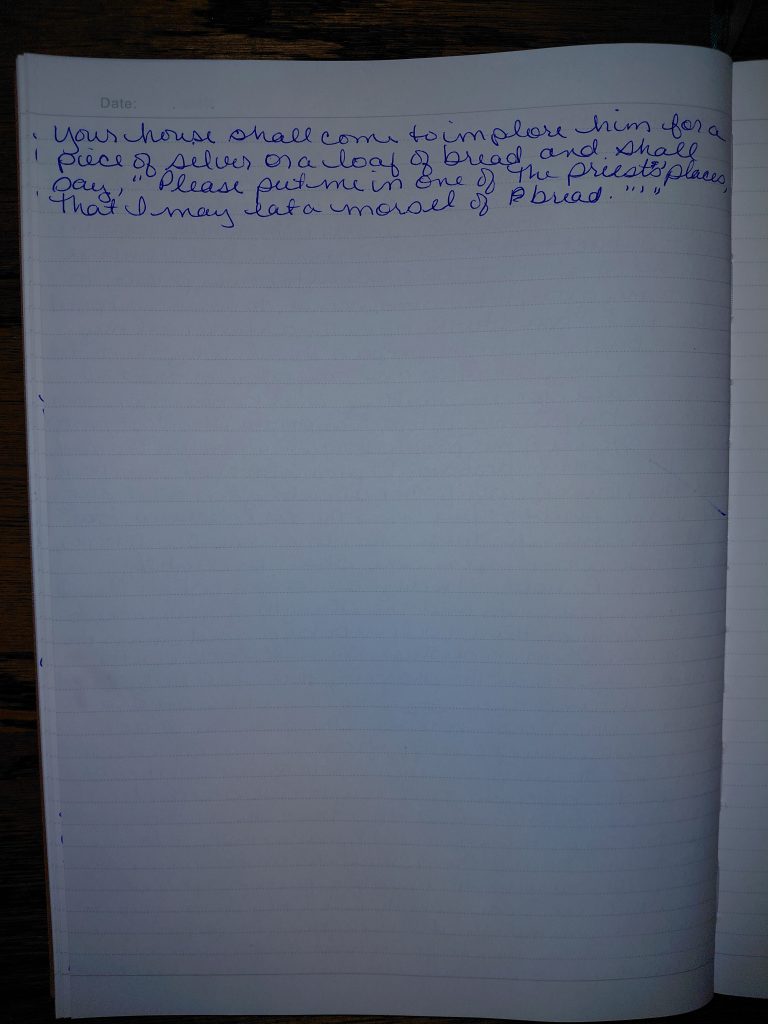 Date:
Your house shall come to implore him for a
piece of silver or a loaf of bread and shall
say, "Please put me in one of the priests' places,
that I may eat a morsel of bread."'"